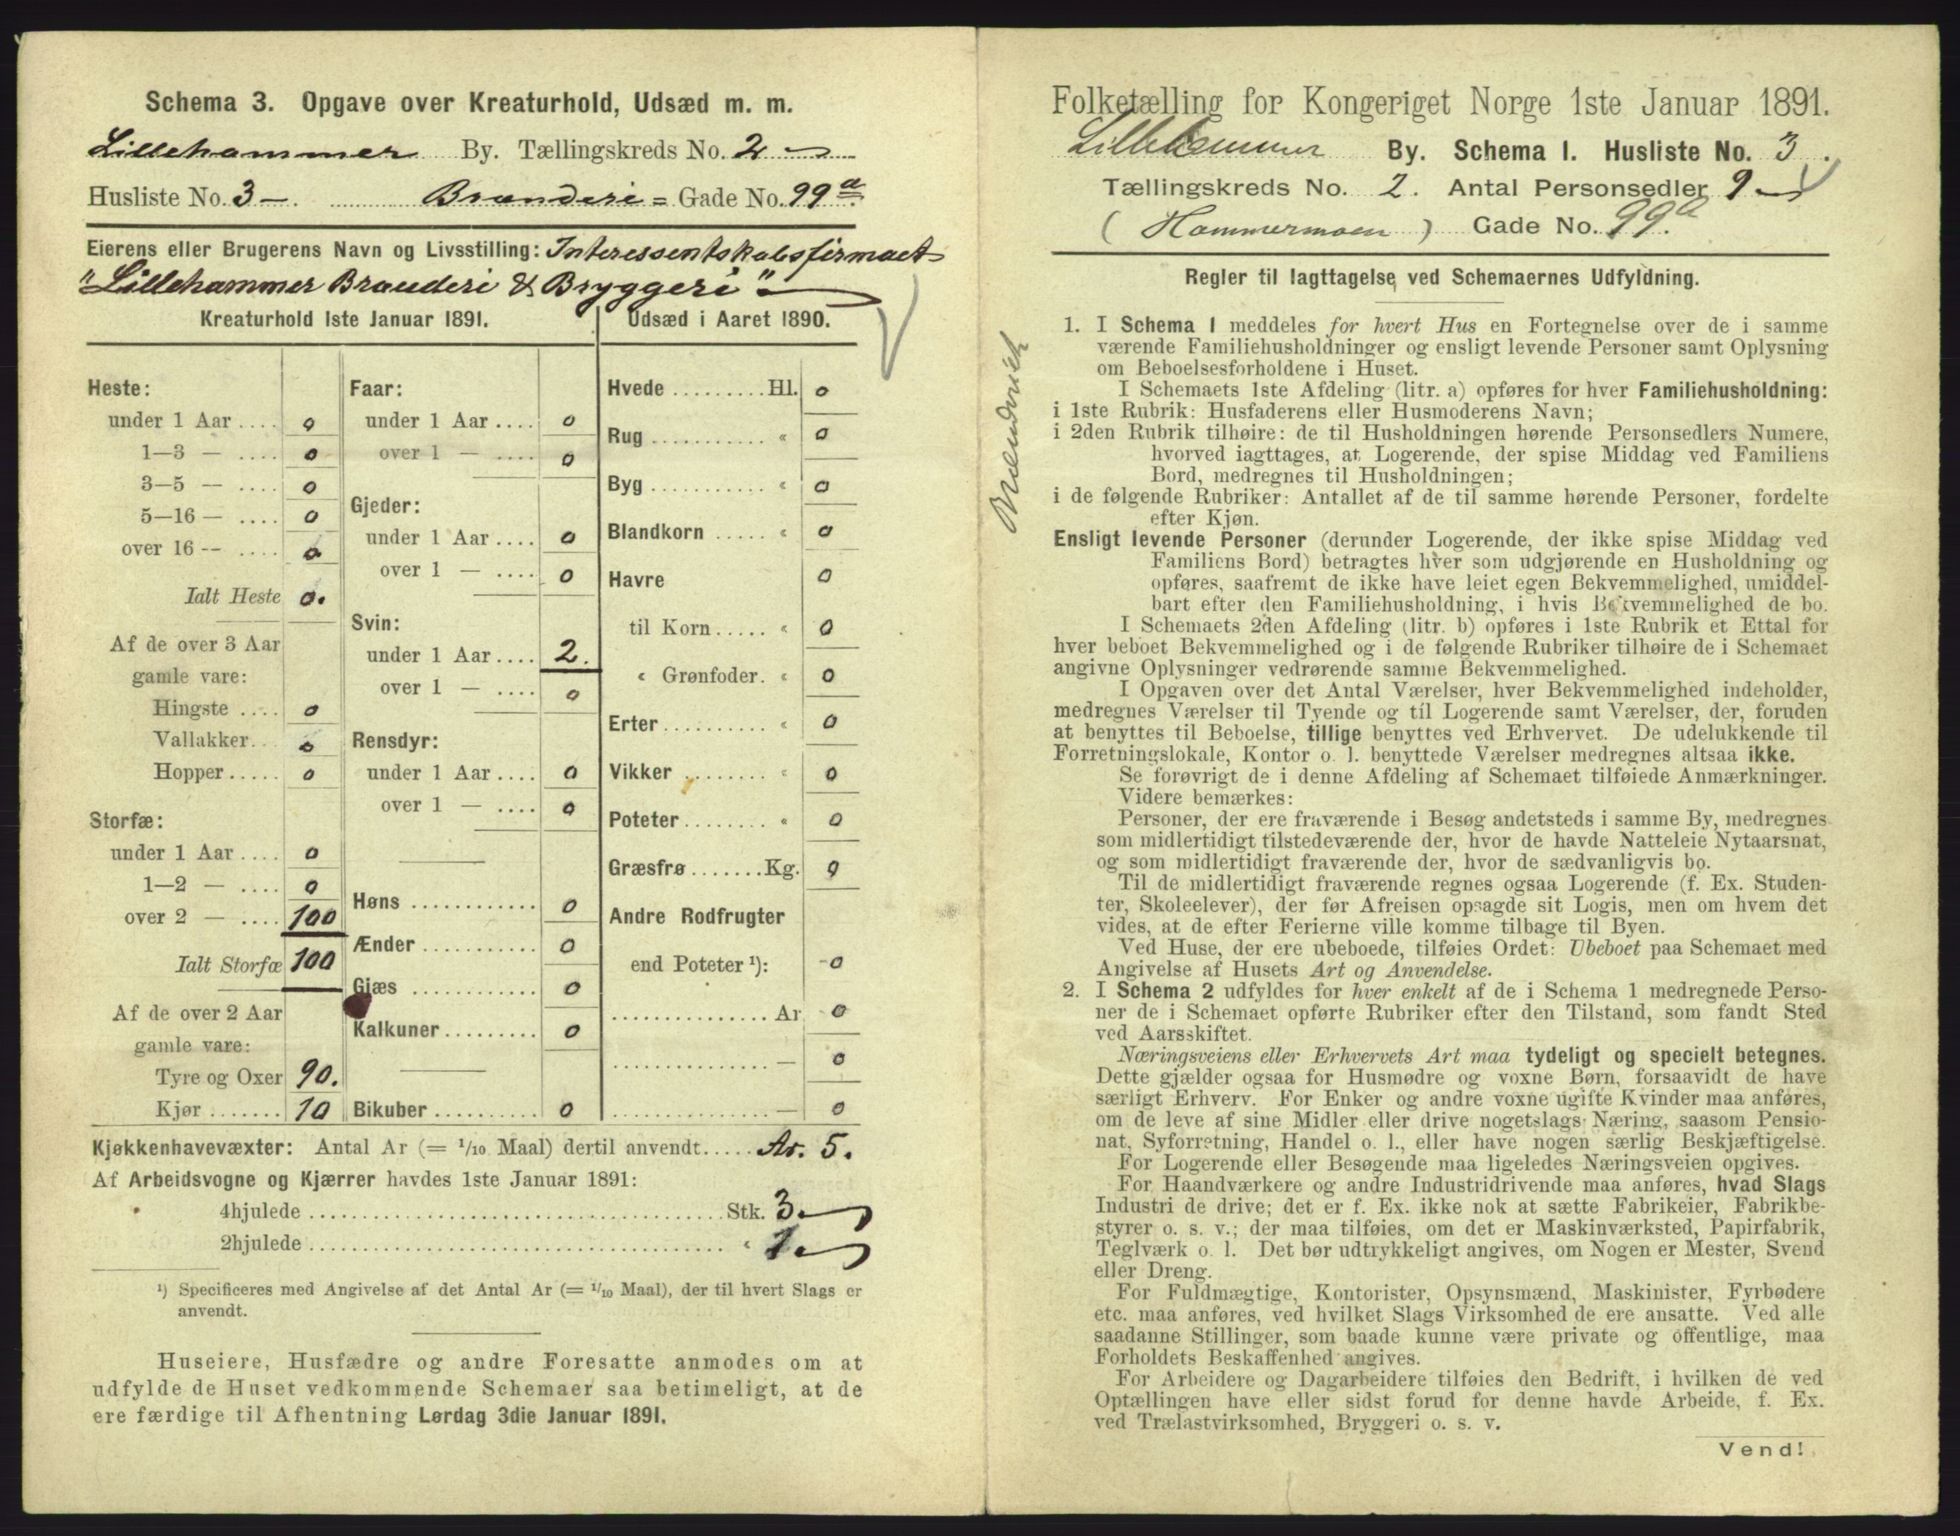 Schema 3. Opgave over Kreaturhold, Udsæd m. m.
Lillehammer By. Tællingskreds No. 2
Husliste No. 3 –. Brænderi = Gade No. 99 a.
Eierens eller Brugerens Navn og Livsstilling: Interessentskabsfirmaet
"Lillehammer Brænderi & Bryggeri"
Kreaturhold 1ste Januar 1891.
Heste:
under 1 Aar .... 0
1—3 — .... 0
3—5 — .... 0
5—16 — .... 0
over 16 -- .... 0
Ialt Heste 0.
Af de over 3 Aar
gamle vare:
Hingste .... 0
Vallakker.. 0
Hopper..... 0
Storfæ:
under 1 Aar .... 0
1—2 — .... 0
over 2 — .... 100
Ialt Storfæ 100
Af de over 2 Aar
gamle vare:
Tyre og Oxer 90.
Kjør ....... 10
Faar:
under 1 Aar .... 0
over 1 — .... 0
Gjeder:
under 1 Aar .... 0
over 1 — .... 0
Svin:
under 1 Aar .... 2.
over 1 — .... 0
Rensdyr:
under 1 Aar .... 0
over 1 — .... 0
Høns ............ 0
Ænder ........... 0
Gjæs ............ 0
Kalkuner......... 0
Bikuber .......... 0
Udsæd i Aaret 1890.
Hvede ......... Hl. 0
Rug ............ « 0
Byg ............ « 0
Blandkorn ..... « 0
Havre 0
til Korn ..... « 0
« Grønfoder. « 0
Erter.......... « 0
Vikker ........ « 0
Poteter ........ « 0
Græsfrø ....... Kg. 0
Andre Rodfrugter
end Poteter ¹): 0
............... Ar 0
............... — 0
............... — 0
Kjøkkenhavevæxter: Antal Ar (= 1/10 Maal) dertil anvendt ..... Ar. 5.
Af Arbeidsvogne og Kjærrer havdes 1ste Januar 1891:
4hjulede ........................................ Stk. 3
2hjulede ........................................ « 1
¹) Specificeres med Angivelse af det Antal Ar (= 1/10 Maal), der til hvert Slags er
anvendt.
Huseiere, Husfædre og andre Foresatte anmodes om at
udfylde de Huset vedkommende Schemaer saa betimeligt, at de
ere færdige til Afhentning Lørdag 3die Januar 1891.
Folketælling for Kongeriget Norge 1ste Januar 1891.
Lillehammer By. Schema 1. Husliste No. 3.
Tællingskreds No. 2. Antal Personsedler 9
(Hammermoen) Gade No. 99 a.
Regler til Iagttagelse ved Schemaernes Udfyldning.
1. I Schema 1 meddeles for hvert Hus en Fortegnelse over de i samme
værende Familiehusholdninger og ensligt levende Personer samt Oplysning
om Beboelsesforholdene i Huset.
I Schemaets 1ste Afdeling (litr. a) opføres for hver Familiehusholdning:
i 1ste Rubrik: Husfaderens eller Husmoderens Navn;
i 2den Rubrik tilhøire: de til Husholdningen hørende Personsedlers Numere,
hvorved iagttages, at Logerende, der spise Middag ved Familiens
Bord, medregnes til Husholdningen;
i de følgende Rubriker: Antallet af de til samme hørende Personer, fordelte
efter Kjøn.
Ensligt levende Personer (derunder Logerende, der ikke spise Middag ved
Familiens Bord) betragtes hver som udgjørende en Husholdning og
opføres, saafremt de ikke have leiet egen Bekvemmelighed, umiddel-
bart efter den Familiehusholdning, i hvis Bekvemmelighed de bo.
I Schemaets 2den Afdeling (litr. b) opføres i 1ste Rubrik et Ettal for
hver beboet Bekvemmelighed og i de følgende Rubriker tilhøire de i Schemaet
angivne Oplysninger vedrørende samme Bekvemmelighed.
I Opgaven over det Antal Værelser, hver Bekvemmelighed indeholder,
medregnes Værelser til Tyende og til Logerende samt Værelser, der, foruden
at benyttes til Beboelse, tillige benyttes ved Erhvervet. De udelukkende til
Forretningslokale, Kontor o. l. benyttede Værelser medregnes altsaa ikke.
Se forøvrigt de i denne Afdeling af Schemaet tilføiede Anmærkninger.
Videre bemærkes:
Personer, der ere fraværende i Besøg andetsteds i samme By, medregnes
som midlertidigt tilstedeværende der, hvor de havde Natteleie Nytaarsnat,
og som midlertidigt fraværende der, hvor de sædvanligvis bo.
Til de midlertidigt fraværende regnes ogsaa Logerende (f. Ex. Studen-
ter, Skoleelever), der før Afreisen opsagde sit Logis, men om hvem det
vides, at de efter Ferierne ville komme tilbage til Byen.
Ved Huse, der ere ubeboede, tilføies Ordet: Ubeboet paa Schemaet med
Angivelse af Husets Art og Anvendelse.
2. I Schema 2 udfyldes for hver enkelt af de i Schema 1 medregnede Perso-
ner de i Schemaet opførte Rubriker efter den Tilstand, som fandt Sted
ved Aarsskiftet.
Næringsveiens eller Erhvervets Art maa tydeligt og specielt betegnes.
Dette gjælder ogsaa for Husmødre og voxne Børn, forsaavidt de have
særligt Erhverv. For Enker og andre voxne ugifte Kvinder maa anføres,
om de leve af sine Midler eller drive nogetslags Næring, saasom Pensio-
nat, Syforretning, Handel o. l., eller have nogen særlig Beskjæftigelse.
For Logerende eller Besøgende maa ligeledes Næringsveien opgives.
For Haandværkere og andre Industridrivende maa anføres, hvad Slags
Industri de drive; det er f. Ex. ikke nok at sætte Fabrikeier, Fabrikbe-
styrer o. s. v.; der maa tilføies, om det er Maskinværksted, Papirfabrik,
Teglværk o. l. Det bør udtrykkeligt angives, om Nogen er Mester, Svend
eller Dreng.
For Fuldmægtige, Kontorister, Opsynsmænd, Maskinister, Fyrbødere
etc. maa anføres, ved hvilket Slags Virksomhed de ere ansatte. Ved alle
saadanne Stillinger, som baade kunne være private og offentlige, maa
Forholdets Beskaffenhed angives.
For Arbeidere og Dagarbeidere tilføies den Bedrift, i hvilken de ved
Optællingen have eller sidst forud for denne havde Arbeide, f. Ex.
ved Trælastvirksomhed, Bryggeri o. s. v.
Vend!